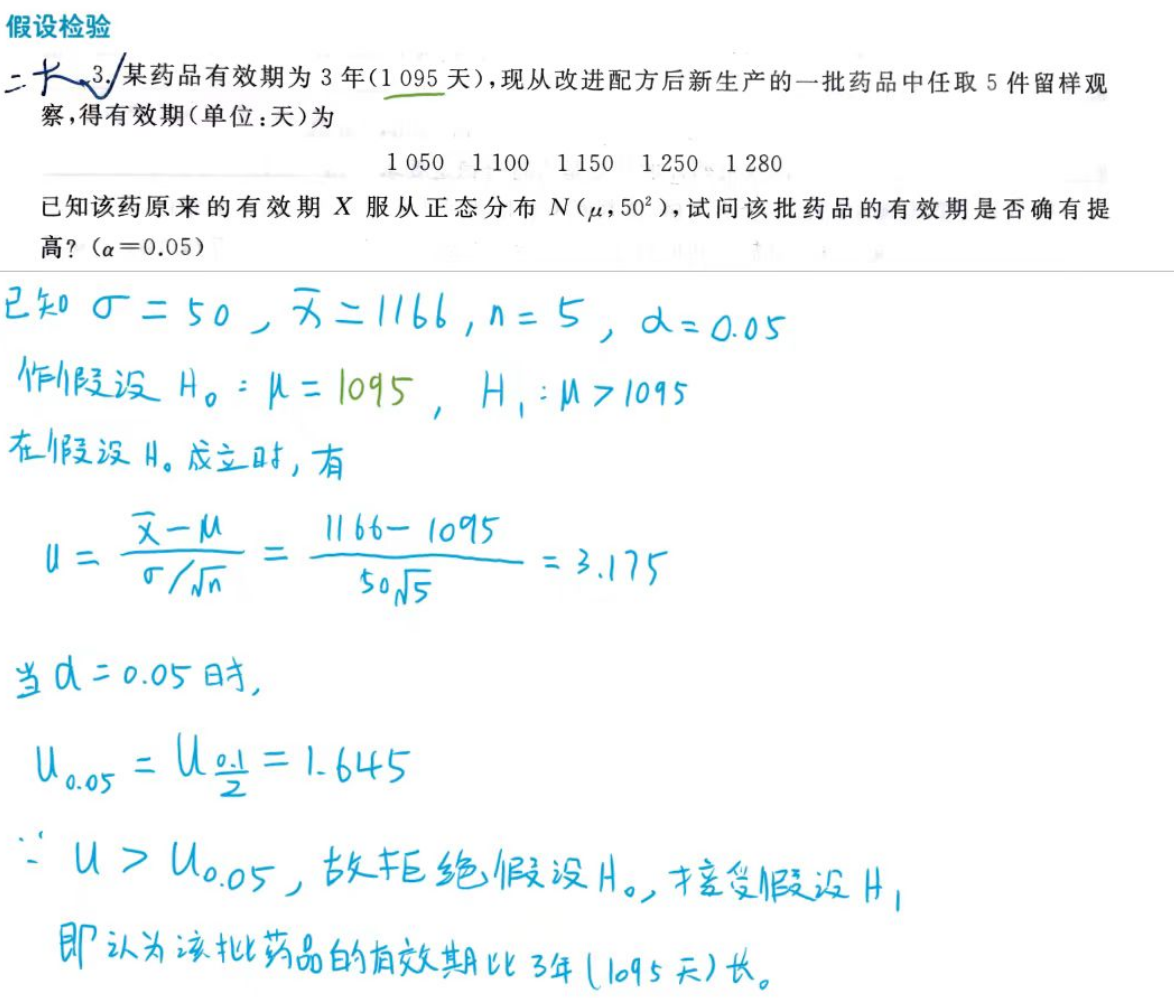 假设检验
二长 3. 某药品有效期为 3 年(1 095 天),现从改进配方后新生产的一批药品中任取 5 件留样观
察,得有效期(单位:天)为
1 050 1 100 1 150 1 250 1 280
已知该药原来的有效期 X 服从正态分布 N(μ,50²),试问该批药品的有效期是否确有提
高?(α=0.05)
已知 σ = 50, x̄ = 1166, n = 5, α = 0.05
作假设 H₀: μ = 1095, H₁: μ > 1095
在假设 H₀ 成立时, 有
u = (x̄ - μ)/(σ/√n) = (1166 - 1095)/(50√5) = 3.175
当 α = 0.05 时,
u₀.₀₅ = u_(0.1/2) = 1.645
∵ u > u₀.₀₅, 故拒绝假设 H₀, 接受假设 H₁
即认为该批药品的有效期比 3年(1095 天)长。